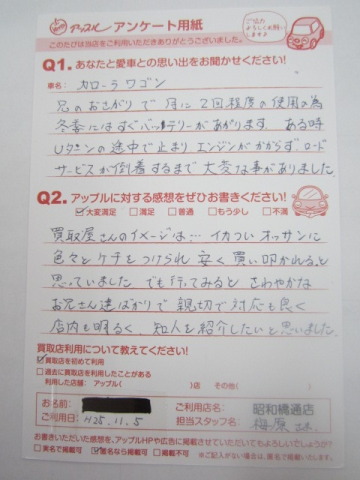 アップル アンケート用紙
このたびは当店をご利用いただきありがとうございました。
ご協力
よろしくお願い
します♪
Q1. あなたと愛車との思い出をお聞かせください!
車名: カローラ ワゴン
兄のおさがりで 月に 2回程度の使用の為
冬季にはすぐバッテリーがあがります。 ある時
Uターンの途中で止まり エンジンがかからず ロード
サービスが到着するまで 大変な事がありました。
Q2. アップルに対する感想をぜひお書きください!
☑大変満足 □満足 □普通 □もう少し □不満
買取屋さんのイメージは… イカつい オッサンに
色々とケチをつけられ 安く 買い叩かれると
思っていました でも行ってみると さわやかな
お兄さん達ばかりで 親切で対応も良く
店内も明るく 知人を紹介したいと思いました。
買取店利用について教えてください!
☑買取店を初めて利用
□過去に買取店を利用したことがある
利用した店舗: アップル( )店 その他( )
お名前:
ご利用日: H25.11.5
ご利用店名: 昭和橋通店
担当スタッフ名: 梅原
お書きいただいた感想を、アップルHPや広告に掲載させていただいてもよろしいでしょうか?
□実名で掲載可 ☑匿名なら掲載可 □掲載不可
※ご記入がない場合は、匿名にて掲載します。